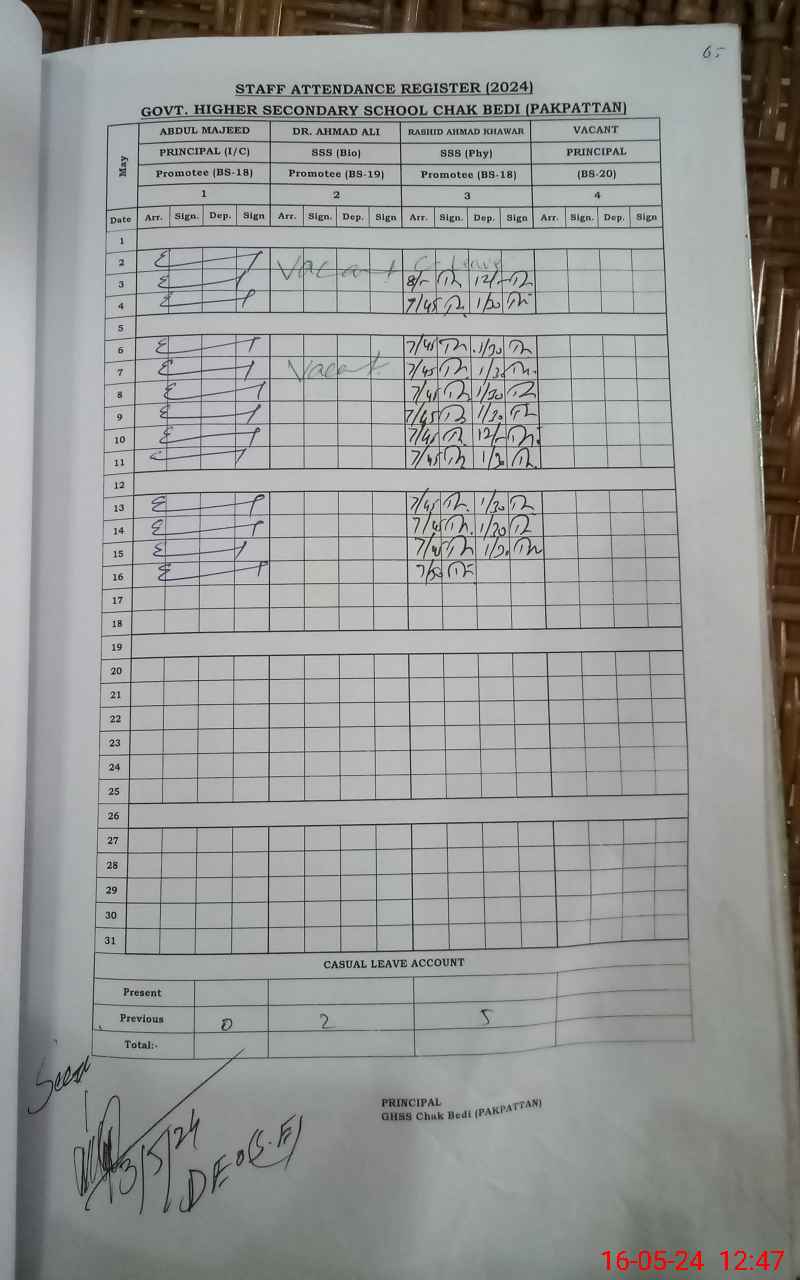 65
STAFF ATTENDANCE REGISTER (2024)
GOVT. HIGHER SECONDARY SCHOOL CHAK BEDI (PAKPATTAN)
May ABDUL MAJEED DR. AHMAD ALI RASHID AHMAD KHAWAR VACANT
PRINCIPAL (I/C) SSS (Bio) SSS (Phy) PRINCIPAL
Promotee (BS-18) Promotee (BS-19) Promotee (BS-18) (BS-20)
1 2 3 4
Date Arr. Sign. Dep. Sign Arr. Sign. Dep. Sign Arr. Sign. Dep. Sign Arr. Sign. Dep. Sign
1
2 Vacant C-leave
3 8/- 12/-
4 7/45 1/30
5
6 7/45 1/30
7 Vacant 7/45 1/30
8 7/45 1/30
9 7/45 1/30
10 7/45 12/-
11 7/45 1/30
12
13 7/45 1/30
14 7/45 1/30
15 7/45 1/30
16 7/50
17
18
19
20
21
22
23
24
25
26
27
28
29
30
31
CASUAL LEAVE ACCOUNT
Present
Previous 0 2 5
Total:-
Seen
PRINCIPAL
GHSS Chak Bedi (PAKPATTAN)
13/5/24
DEO(S.E)
16-05-24 12:47